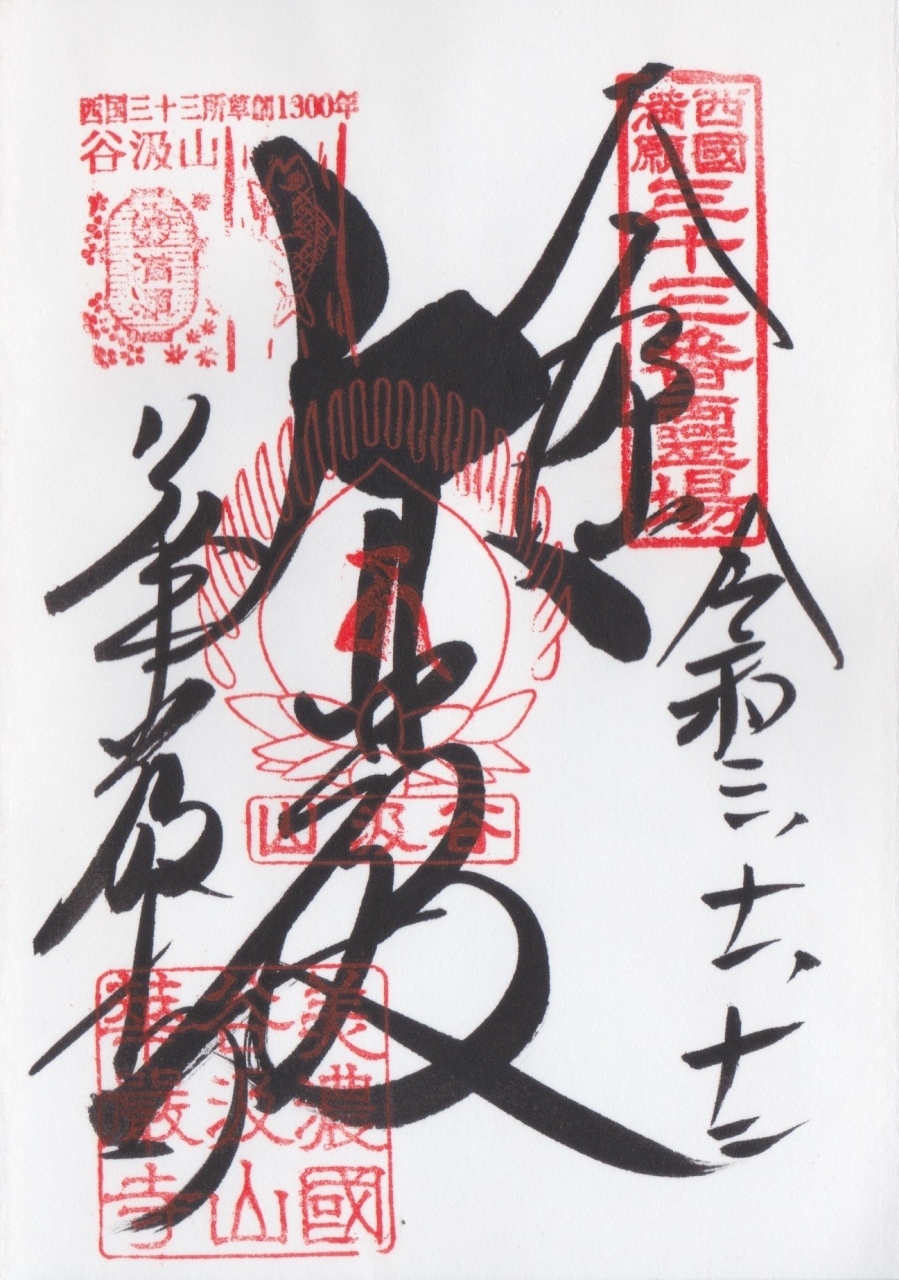 西國満願
三十三番霊場
奉拝
令和三、十一、十二
大悲殿
谷汲山
華厳寺
西国三十三所草創1300年
谷汲山
美濃國
谷汲山
華嚴寺